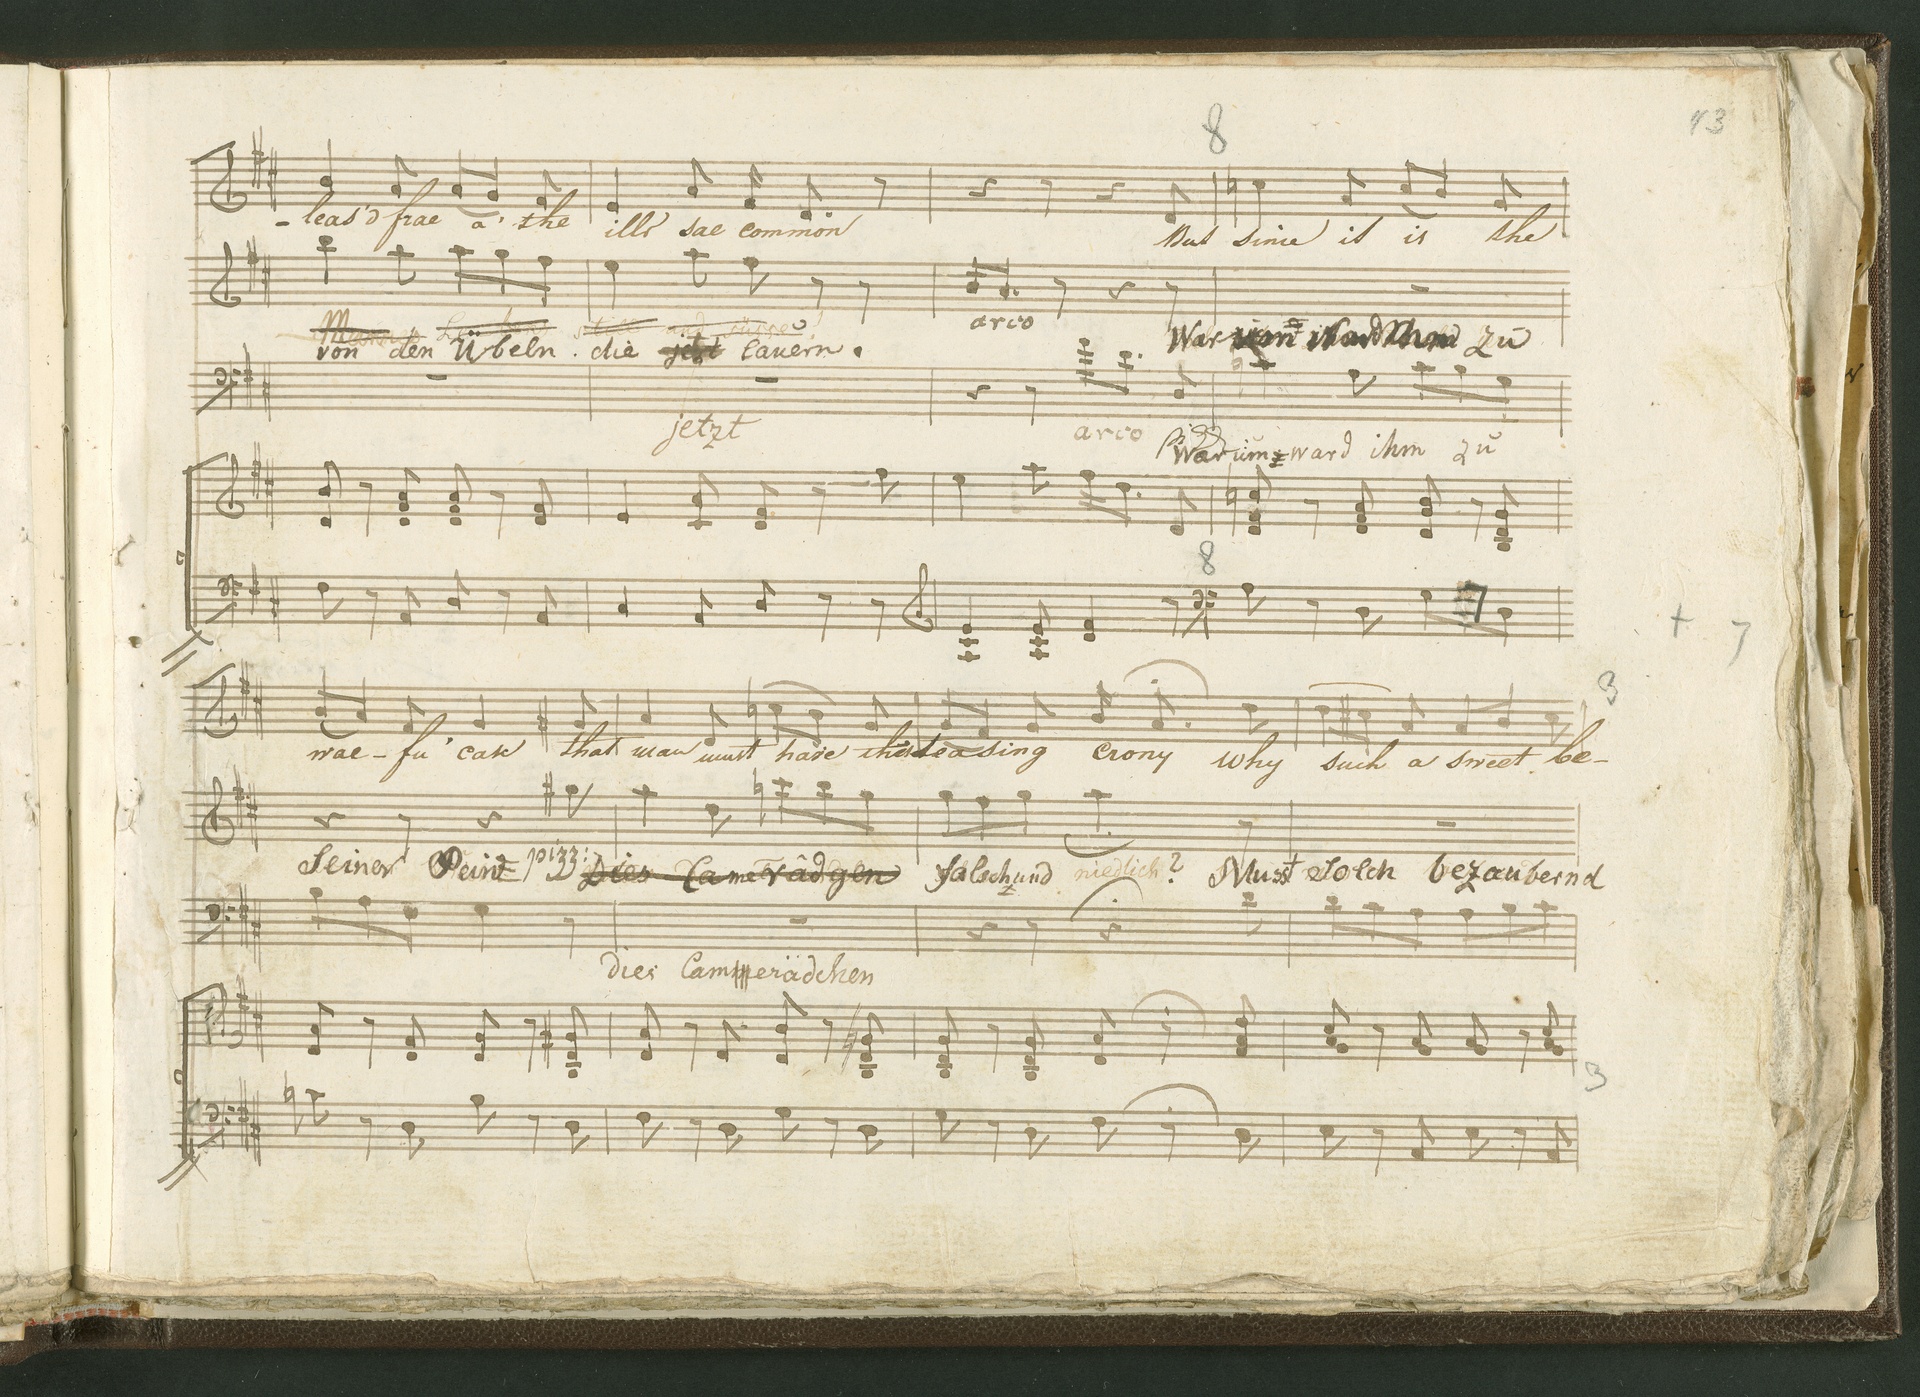 43
8
-leas'd frae a' the ills sae common But since it is the
arco
von den Übeln. die jetzt lauern. War zu
jetzt arco pizz
Warum ward ihm zu
8
+ 7
3
wae-fu' case that man must have this teasing crony why such a sweet be-
Seiner Pein pizz: Dies Camerädgen falsch und niedlich? Must solch bezaubernd
dies Camerädchen
3